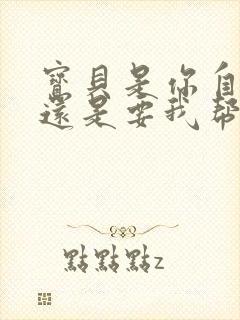 寶貝是你自
還是要我幫
點點點z